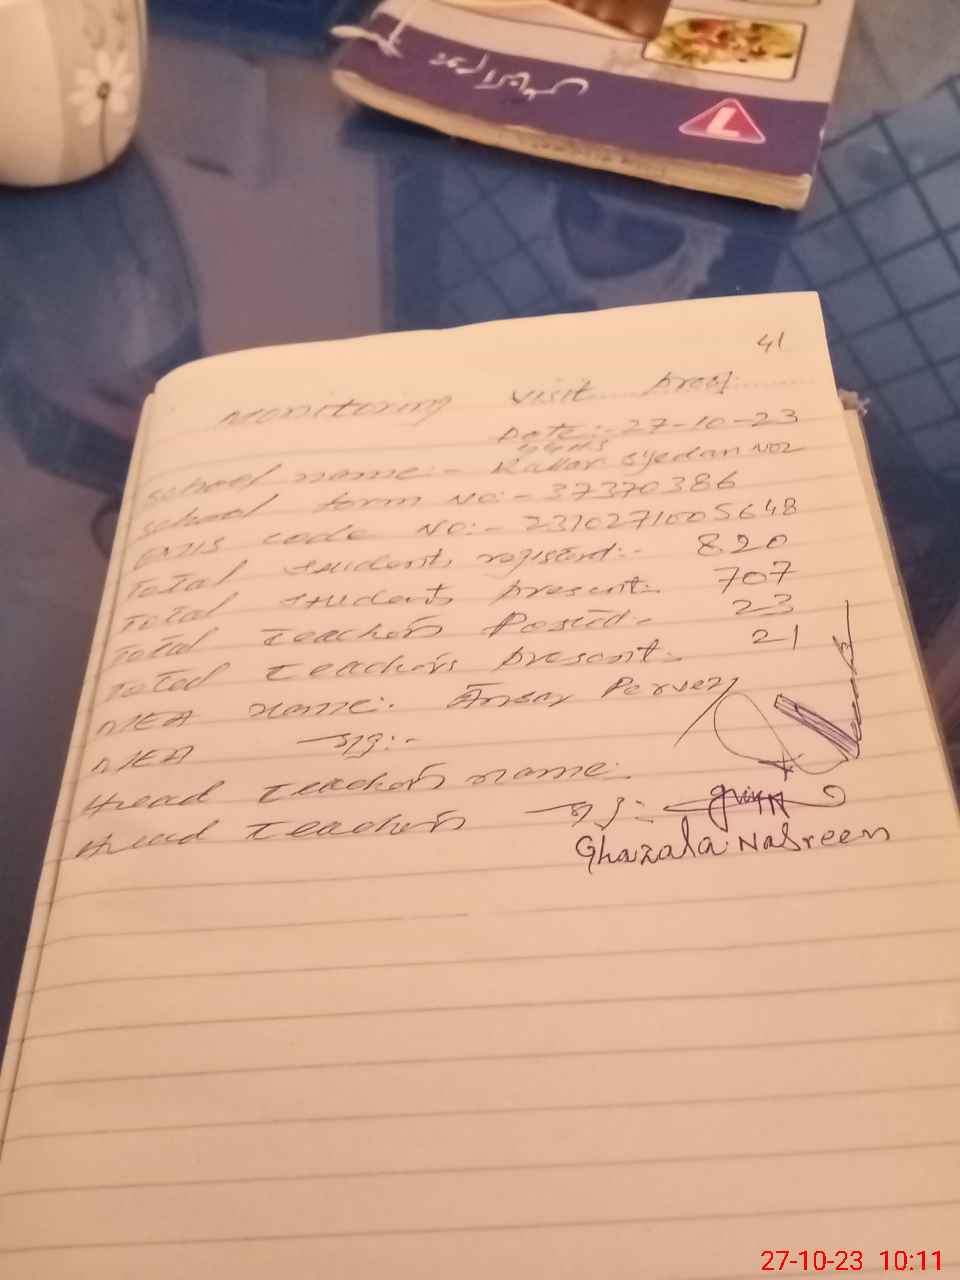 41
Monitoring visit proof
Date:- 27-10-23
GGHS
School name:- Kallar Syedan No2
School form No:- 37370386
EMIS code No:- 2310271005648
Total students registerd:- 820
Total students present:- 707
Total Teachers Posted:- 23
Total Teachers present:- 21
MEA name:- Ansar Pervez
MEA sig:-
Head Teachers name:
Head Teachers sig:-
Ghazala Nasreen
27-10-23 10:11